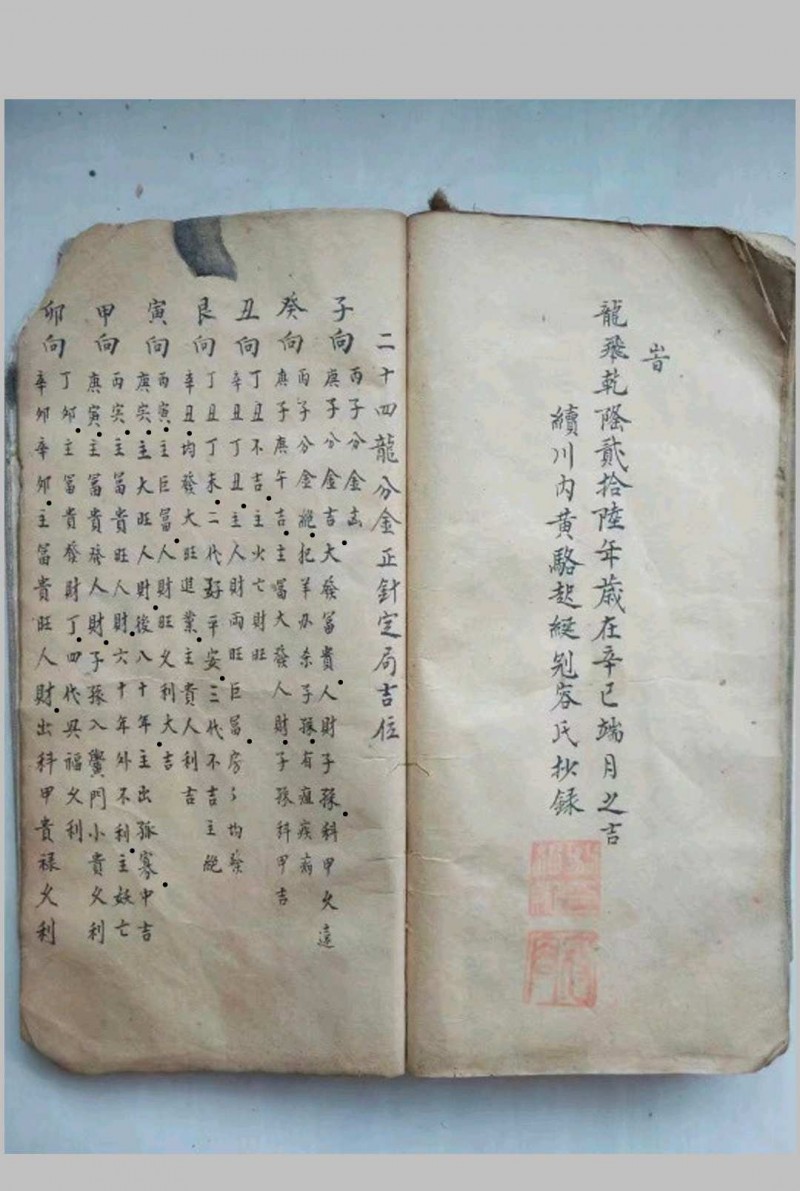 旹
龍飛乾隆貳拾陸年歲在辛巳端月之吉
續川內黄駱起綎剋容氏抄錄
二十四龍分金正針定局吉位
子向
丙子分金凶
庚子分金吉大發冨貴人財子孫科甲久遠
癸向
丙子分金絕把羊办杀子孫有瘟疾病
庚子庚午吉主冨大發人財子孫科甲吉
丑向
丁丑不吉主火亡財旺
辛丑丁丑主人財両旺巨冨房〻均發
艮向
丁丑丁未二代好平安三代不吉主絕
辛丑均發大旺進業主貴人利吉
寅向
丙寅主巨冨人財旺久利大吉
庚寅主大旺人財後八十年主出孤寡中吉
甲向
丙寅主冨貴旺人財六十年外不利主妖亡
庚寅主冨貴發人財子孫入黌門小貴久利
卯向
丁卯主冨貴發財丁四代興福久利
辛卯辛卯主冨貴旺人財出科甲貴禄久利